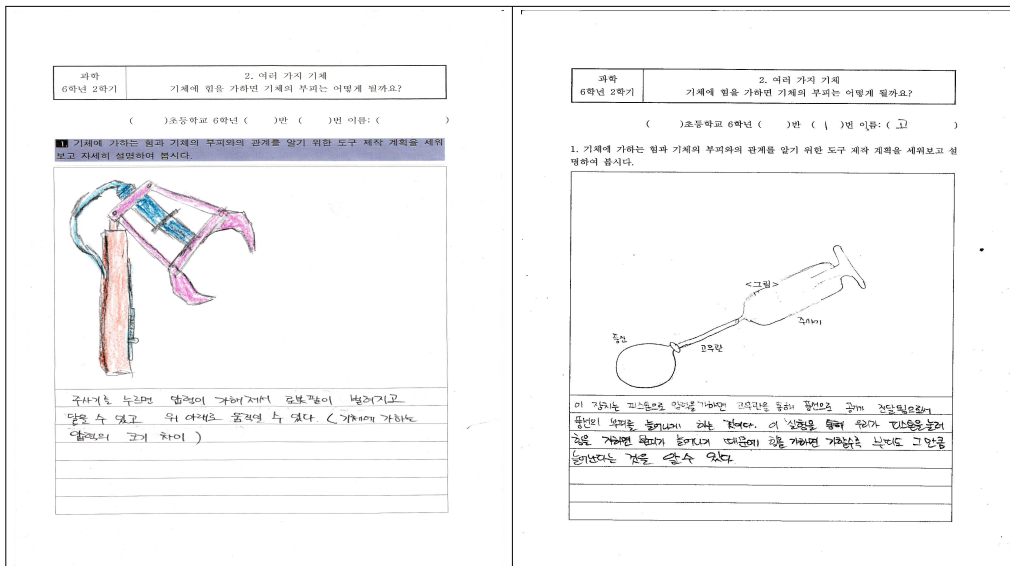 과학
6학년 2학기
2. 여러 가지 기체
기체에 힘을 가하면 기체의 부피는 어떻게 될까요?
(        )초등학교 6학년 (     )반 (     )번 이름: (              )
1. 기체에 가하는 힘과 기체의 부피와의 관계를 알기 위한 도구 제작 계획을 세워
보고 자세히 설명하여 봅시다.
주사기를 누르면 압력이 가해져서 로봇팔이 벌려지고
닫을 수 있고 위 아래로 움직일 수 있다. (기체에 가하는
압력의 크기 차이)
과학
6학년 2학기
2. 여러 가지 기체
기체에 힘을 가하면 기체의 부피는 어떻게 될까요?
(        )초등학교 6학년 (     )반 ( 1 )번 이름: ( 고          )
1. 기체에 가하는 힘과 기체의 부피와의 관계를 알기 위한 도구 제작 계획을 세워보고 설
명하여 봅시다.
<그림>
주사기
풍선
고무관
이 장치는 피스톤으로 압력을 가하면 고무관을 통해 풍선으로 공기가 전달됨으로써
풍선의 부피를 늘어나게 하는 것이다. 이 실험을 통해 우리가 피스톤을 눌러
힘을 가하면 부피가 늘어나기 때문에 힘을 가하면 가할수록 부피도 그만큼
늘어난다는 것을 알 수 있다.